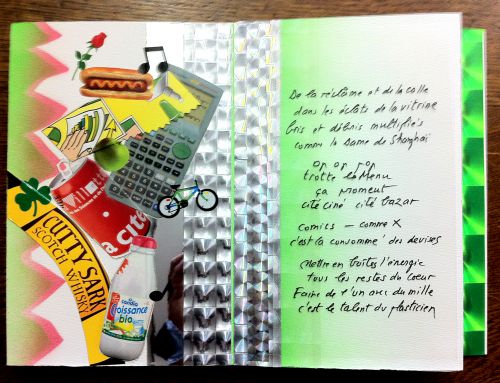 CUTTY SARK
SCOTCH WHISKY
candia
croissance
bio
De la réclame et de la colle
dans les éclats de la vitrine
Bris et débris multipliés
comme la Dame de Shanghaï
op op pop
trotte le Menu
ça moment
cité ciné cité bazar
comics — comme X
c'est la consommé des devises
Mettre en boîtes l'énergie
tous les restes du coeur
Faire de l'un avec du mille
c'est le talent du plasticien